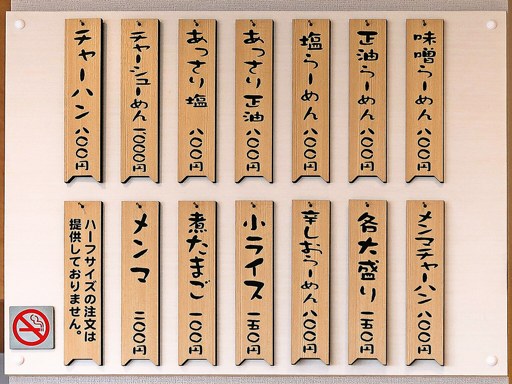 味噌らーめん 八〇〇円
正油らーめん 八〇〇円
塩らーめん 八〇〇円
あっさり正油 八〇〇円
あっさり塩 八〇〇円
チャーシューめん 一〇〇〇円
チャーハン 八〇〇円
メンマチャーハン 八〇〇円
各大盛り 一五〇円
辛しおらーめん 八〇〇円
小ライス 一五〇円
煮たまご 一〇〇円
メンマ 二〇〇円
ハーフサイズの注文は
提供しておりません。